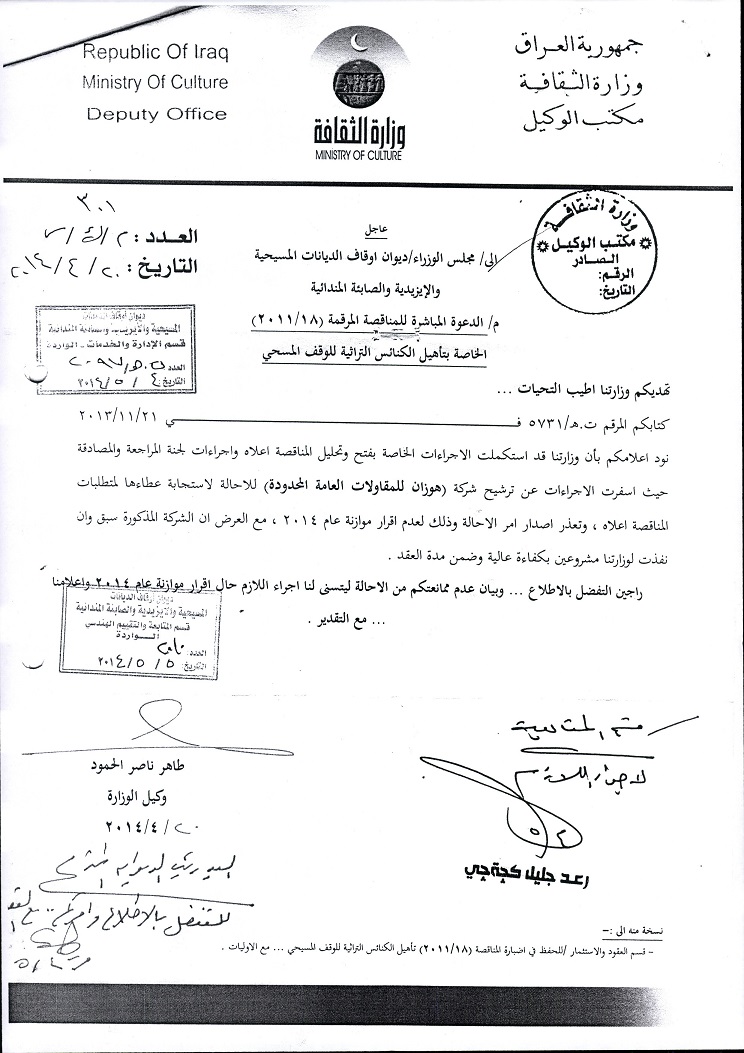 Republic Of Iraq
Ministry Of Culture
Deputy Office
وزارة الثقافة
MINISTRY OF CULTURE
جمهورية العراق
وزارة الثقافة
مكتب الوكيل
٣٠١
العدد : ٢/ك/
التاريخ : ٢٠/٤/٢٠١٤
وزارة الثقافة
مكتب الوكيل
الصادر
الرقم:
التاريخ:
عاجل
الى/ مجلس الوزراء/ديوان اوقاف الديانات المسيحية
والايزيدية والصابئة المندائية
م/ الدعوة المباشرة للمناقصة المرقمة (٢٠١١/١٨)
الخاصة بتأهيل الكنائس التراثية للوقف المسحي
ديوان أوقاف الديانات
المسيحية والايزيدية والصابئة المندائية
قسم الإدارة والخدمات - الواردة
العدد
التاريخ: ٤/٥/٢٠١٤
تهديكم وزارتنا اطيب التحيات ...
كتابكم المرقم ت.هـ/٥٧٣١ فـــي ٢٠١٣/١١/٢١
نود اعلامكم بأن وزارتنا قد استكملت الاجراءات الخاصة بفتح وتحليل المناقصة اعلاه واجراءات لجنة المراجعة والمصادقة
حيث اسفرت الاجراءات عن ترشيح شركة (هوزان للمقاولات العامة المحدودة) للاحالة لاستجابة عطاءها لمتطلبات
المناقصة اعلاه ، وتعذر اصدار امر الاحالة وذلك لعدم اقرار موازنة عام ٢٠١٤ ، مع العرض ان الشركة المذكورة سبق وان
نفذت لوزارتنا مشروعين بكفاءة عالية وضمن مدة العقد .
راجين التفضل بالاطلاع ... وبيان عدم ممانعتكم من الاحالة ليتسنى لنا اجراء اللازم حال اقرار موازنة عام ٢٠١٤ واعلامنا
... مع التقدير .
ديوان أوقاف الديانات
المسيحية والايزيدية والصابئة المندائية
قسم المتابعة والتقييم الهندسي
الــواردة
العدد
التاريخ: ٥/٥/٢٠١٤
طاهر ناصر الحمود
وكيل الوزارة
٢٠/٤/٢٠١٤
قسم المتابعة
لاجراء اللازم
رعد جليل كجةجي
السيد رئيس الديوان المحترم
للتفضل بالاطلاع وامركم .. مع التقدير
نسخة منه الى :-
- قسم العقود والاستثمار /للحفظ في اضبارة المناقصة (٢٠١١/١٨) تأهيل الكنائس التراثية للوقف المسيحي ... مع الاوليات .